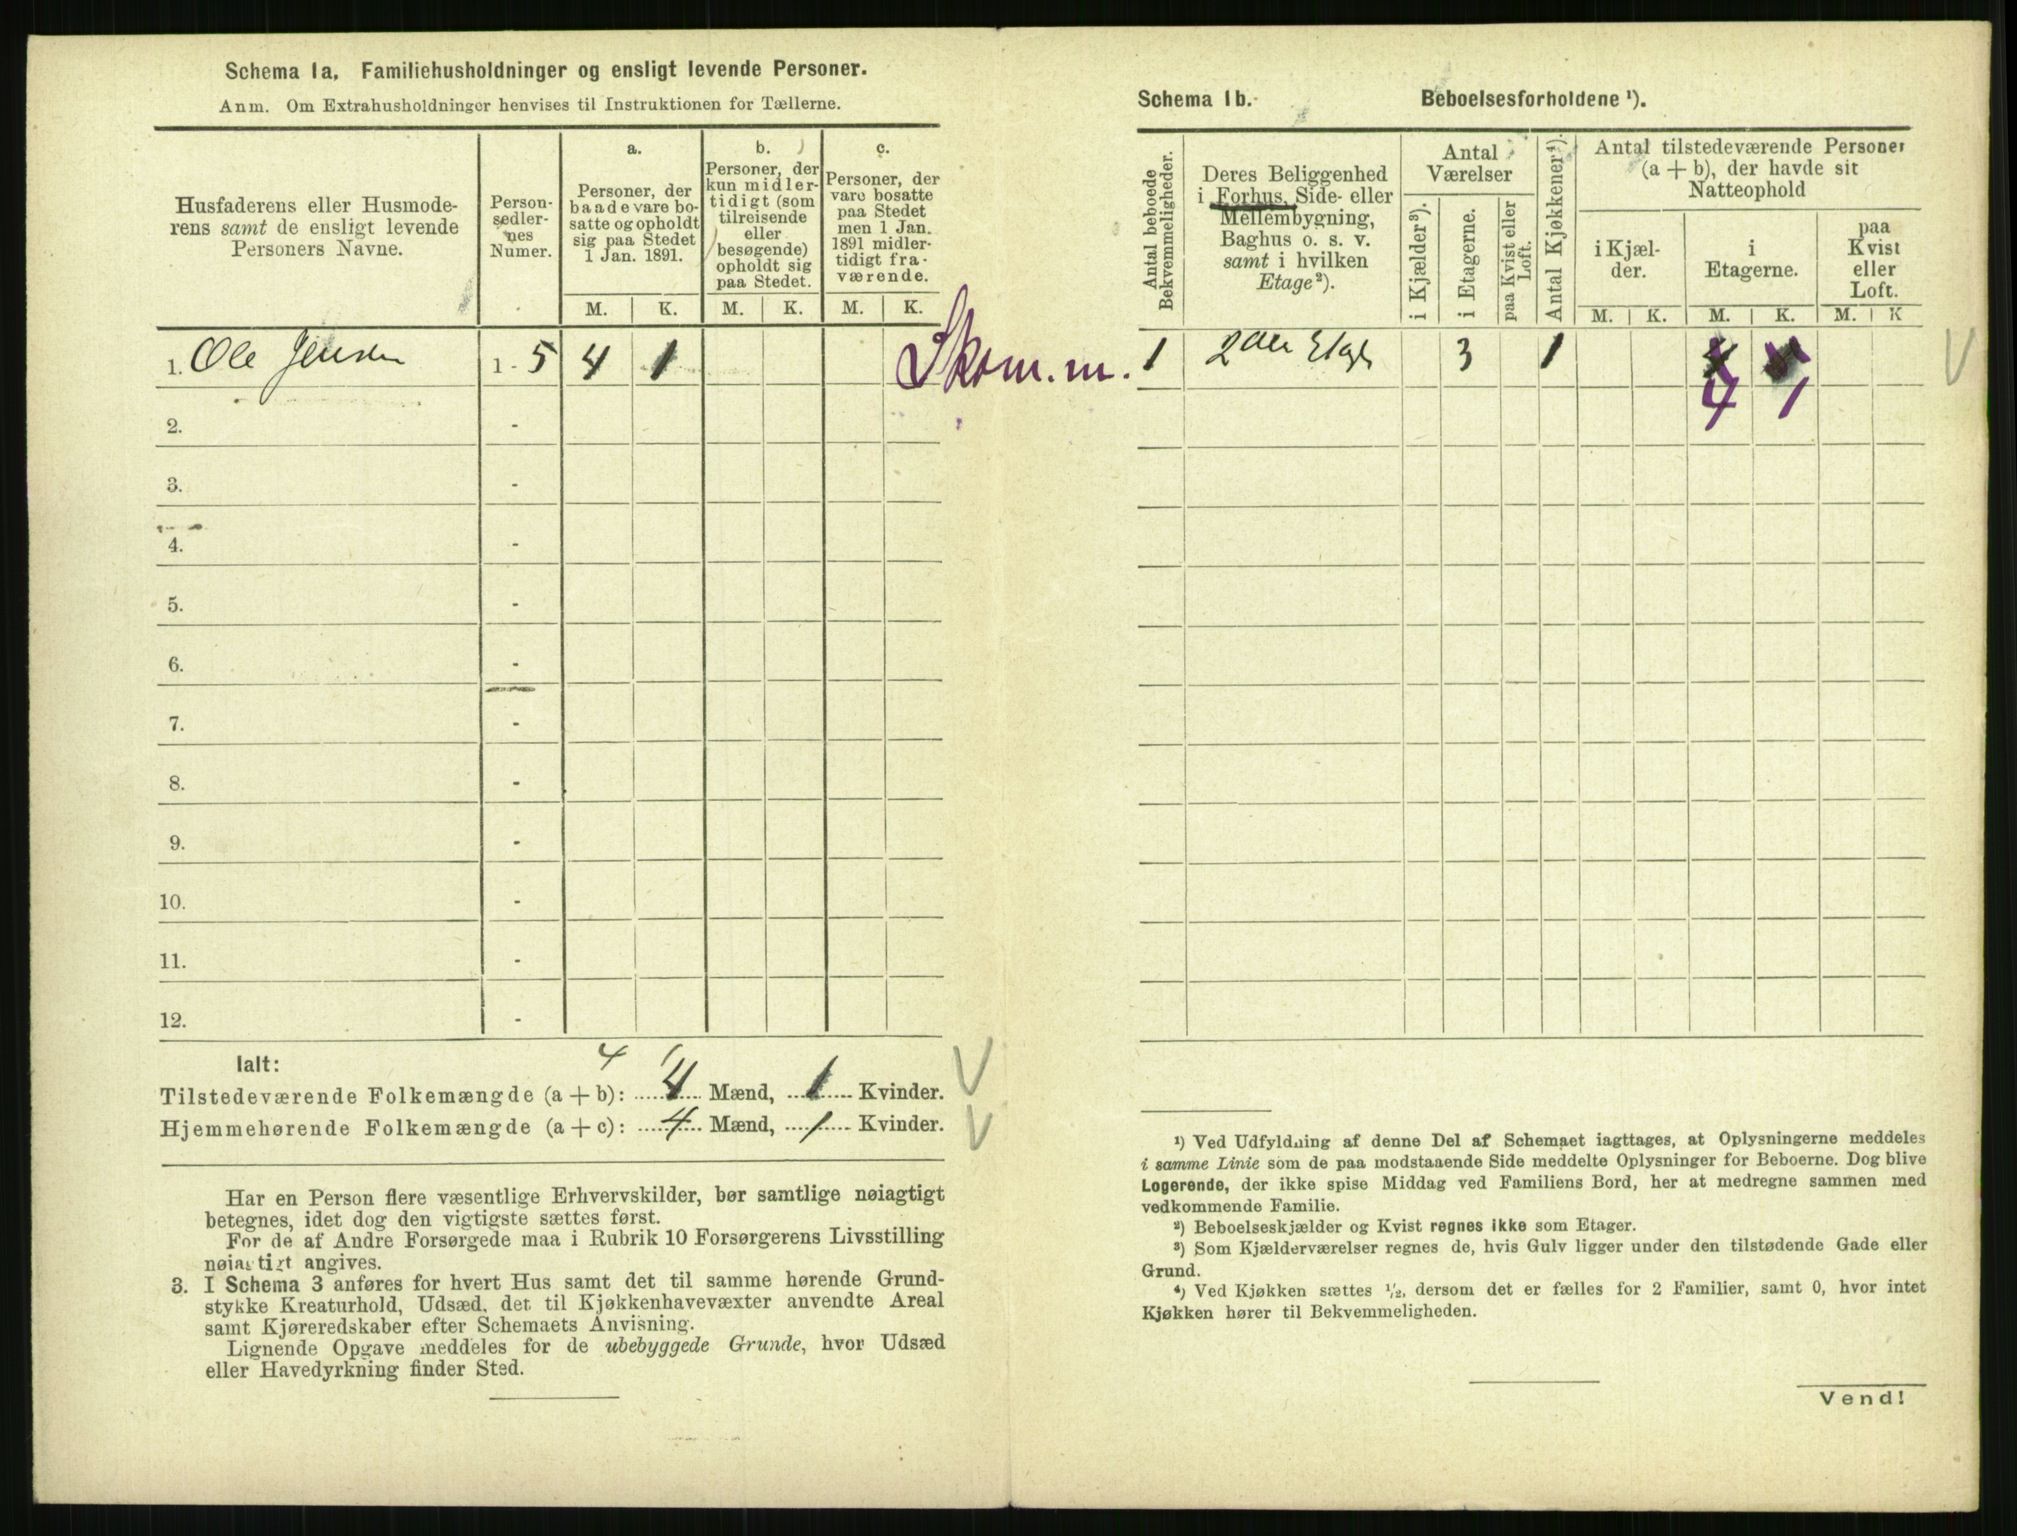 Schema 1a. Familiehusholdninger og ensligt levende Personer.
Anm. Om Extrahusholdninger henvises til Instruktionen for Tællerne.
Husfaderens eller Husmode-
rens samt de ensligt levende
Personers Navne.
Person-
sedler-
nes
Numer.
a.
Personer, der
baade vare bo-
satte og opholdt
sig paa Stedet
1 Jan. 1891.
M. K.
b.
Personer, der
kun midler-
tidigt (som
tilreisende
eller
besøgende)
opholdt sig
paa Stedet.
M. K.
c.
Personer, der
vare bosatte
paa Stedet
men 1 Jan.
1891 midler-
tidigt fra-
værende.
M. K.
1. Ole Jensen 1 - 5 4 1
Skom. m.
2. -
3. -
4. -
5. -
6. -
7. -
8. -
9. -
10. -
11. -
12. -
Ialt: 4
Tilstedeværende Folkemængde (a + b): 4 Mænd, 1 Kvinder.
Hjemmehørende Folkemængde (a + c): 4 Mænd, 1 Kvinder.
Har en Person flere væsentlige Erhvervskilder, bør samtlige nøiagtigt
betegnes, idet dog den vigtigste sættes først.
For de af Andre Forsørgede maa i Rubrik 10 Forsørgerens Livsstilling
nøiagtigt angives.
3. I Schema 3 anføres for hvert Hus samt det til samme hørende Grund-
stykke Kreaturhold, Udsæd, det til Kjøkkenhavevæxter anvendte Areal
samt Kjøreredskaber efter Schemaets Anvisning.
Lignende Opgave meddeles for de ubebyggede Grunde, hvor Udsæd
eller Havedyrkning finder Sted.
Schema 1b. Beboelsesforholdene ¹).
Antal beboede
Bekvemmeligheder.
Deres Beliggenhed
i Forhus, Side- eller
Mellembygning,
Baghus o. s. v.
samt i hvilken
Etage ²).
Antal
Værelser
i Kjælder ³).
i Etagerne.
paa Kvist eller
Loft.
Antal Kjøkkener ⁴).
Antal tilstedeværende Personer
(a + b), der havde sit
Natteophold
i Kjæl-
der.
M. K.
i
Etagerne.
M. K.
paa
Kvist
eller
Loft.
M. K
1 2den Etage 3 1
4 1
¹) Ved Udfyldning af denne Del af Schemaet iagttages, at Oplysningerne meddeles
i samme Linie som de paa modstaaende Side meddelte Oplysninger for Beboerne. Dog blive
Logerende, der ikke spise Middag ved Familiens Bord, her at medregne sammen med
vedkommende Familie.
²) Beboelseskjælder og Kvist regnes ikke som Etager.
³) Som Kjælderværelser regnes de, hvis Gulv ligger under den tilstødende Gade eller
Grund.
⁴) Ved Kjøkken sættes ½, dersom det er fælles for 2 Familier, samt 0, hvor intet
Kjøkken hører til Bekvemmeligheden.
Vend!